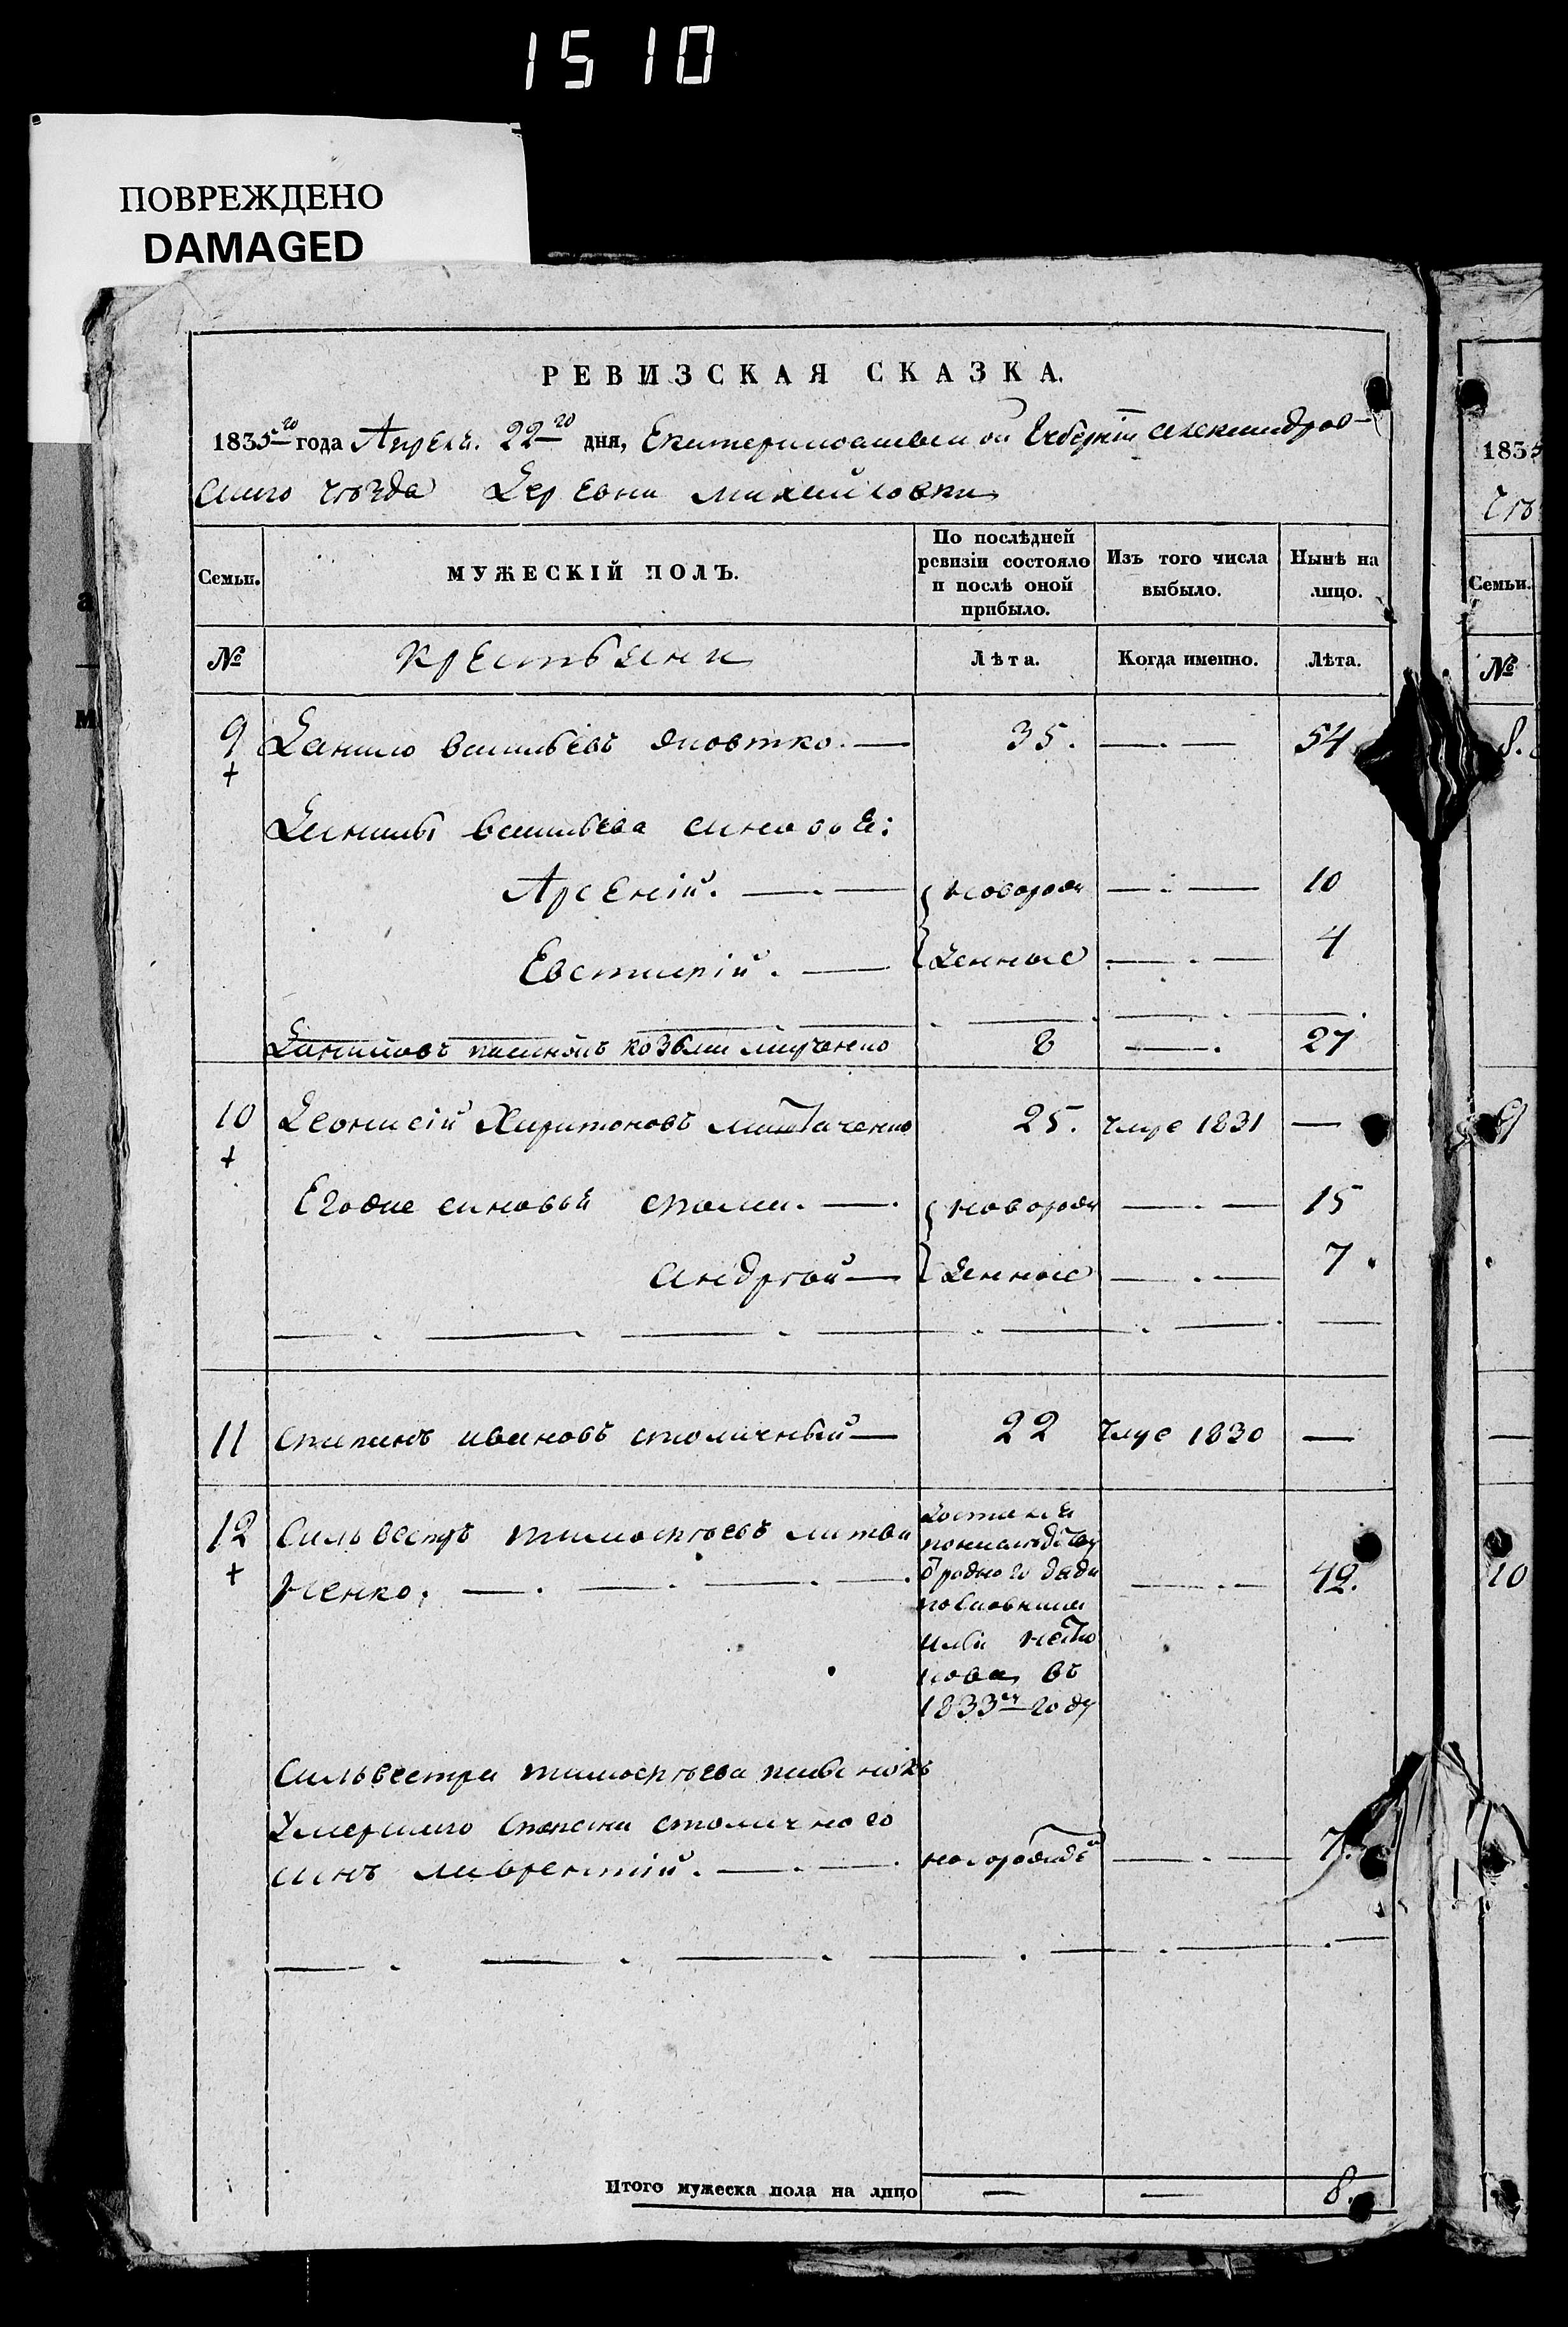 1510
ПОВРЕЖДЕНО
DAMAGED
РЕВИЗСКАЯ СКАЗКА.
1835го года Апреля. 22го дня, Екатеринославской Губернии Александров-
скаго уезда Деревни Михайловки
Семьи. МУЖЕСКІЙ ПОЛЪ. По послѣдней ревизіи состояло и послѣ оной прибыло. Изъ того числа выбыло. Нынѣ на лицо.
№ Крестьяни Лѣта. Когда именно. Лѣта.
9 Данило Васильевъ 35. 54
Данилы Васильева синовья:
Арсеній. новорож 10
Евстигній. денные 4
Даниловъ пасинокъ Козьма 8 27
10 Деонисій Харитоновъ 25. умре 1831
Егоже синовья Фома. новорож 15
Андрѣй денные 7
11 Степанъ Ивановъ Столичный 22 умре 1830
12 Сильвестръ Тимофѣевъ Литви
ненко. 42.
достался
по наслѣдству
отродного дяди
полковника
нова въ
1833м году
Сильвестра Тимофѣева
Умершаго Степана Столичного
синъ Лаврентій. новорожде 7.
Итого мужеска пола на лицо 8.
1835
Семьи.
№
8.
9
10